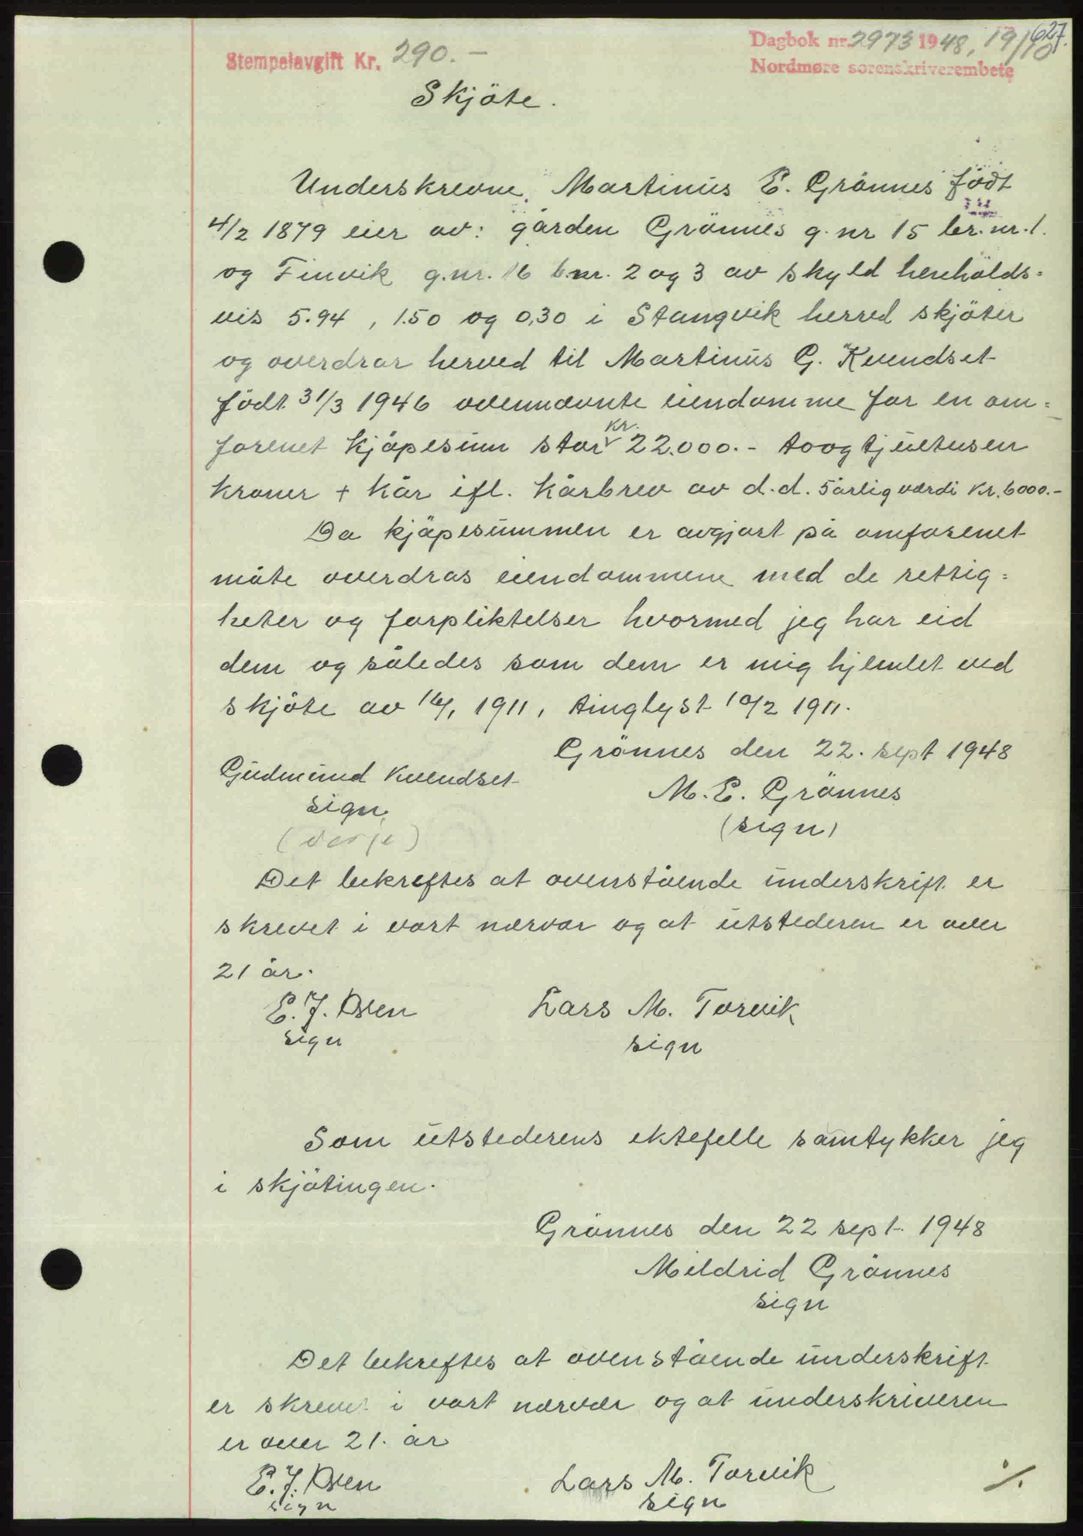 627.
Dagbok nr. 2973 1948, 19/10
Nordmøre sorenskriverembete
Stempelavgift Kr. 290.-
Skjöte.
Underskrevne, Martinus E. Grönnes født
4/2 1879 eier av: gården Grönnes g. nr 15 br. nr. 1.
og Finvik g.nr. 16 bnr. 2 og 3 av skyld henholds=
vis 5.94, 1.50 og 0,30 i Stangvik herred skjöter
og overdrar herved til Martinus G. Kvendset
födt 31/3 1946 ovennevnte eiendomme for en om=
forenet kjöpesum stor kr. 22.000.- toogtjuetusen
kroner + kår ifl. kårbrev av d.d. 5årlig værdi kr. 6000.-
Da kjöpesummen er avgjort på omforenet
måte overdras eiendommene med de rettig=
heter og forpliktelser hvormed jeg har eid
dem og således som dem er mig hjemlet ved
skjöte av 16/1 1911, tinglyst 10/2 1911.
Grönnes den 22. sept 1948
Gudmund Kvendset
sign.
(verje)
M. E. Grönnes
(sign)
Det bekreftes at ovenstående underskrift er
skrevet i vort nærvær og at utstederen er over
21 år.
E. J. Øien
sign
Lars M. Torvik
sign
Som utstederens ektefelle samtykker jeg
i skjötingen.
Grönnes den 22 sept. 1948
Mildrid Grönnes
sign
Det bekreftes at ovenstående underskrift
er skrevet i vort nærvær og at underskriveren
er over 21. år
E. J. Øien
sign
Lars M. Torvik
sign
./.